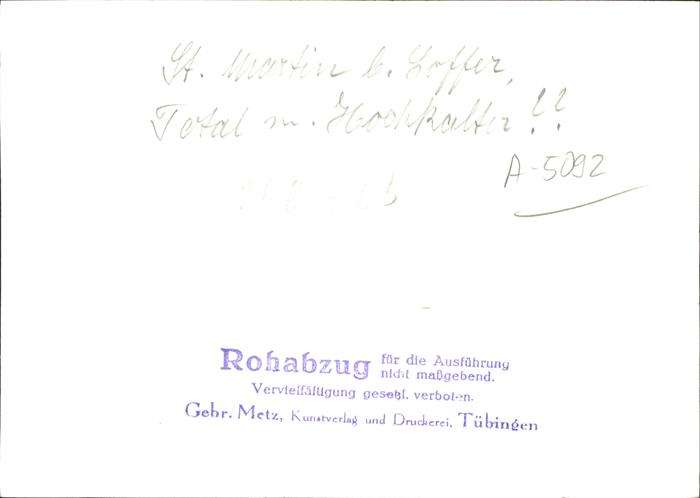 St. Martin b. Loffer,
Total m. Hochkalter!!
A-5092
Rohabzug für die Ausführung
nicht maßgebend.
Vervielfältigung gesetzl. verboten.
Gebr. Metz, Kunstverlag und Druckerei, Tübingen